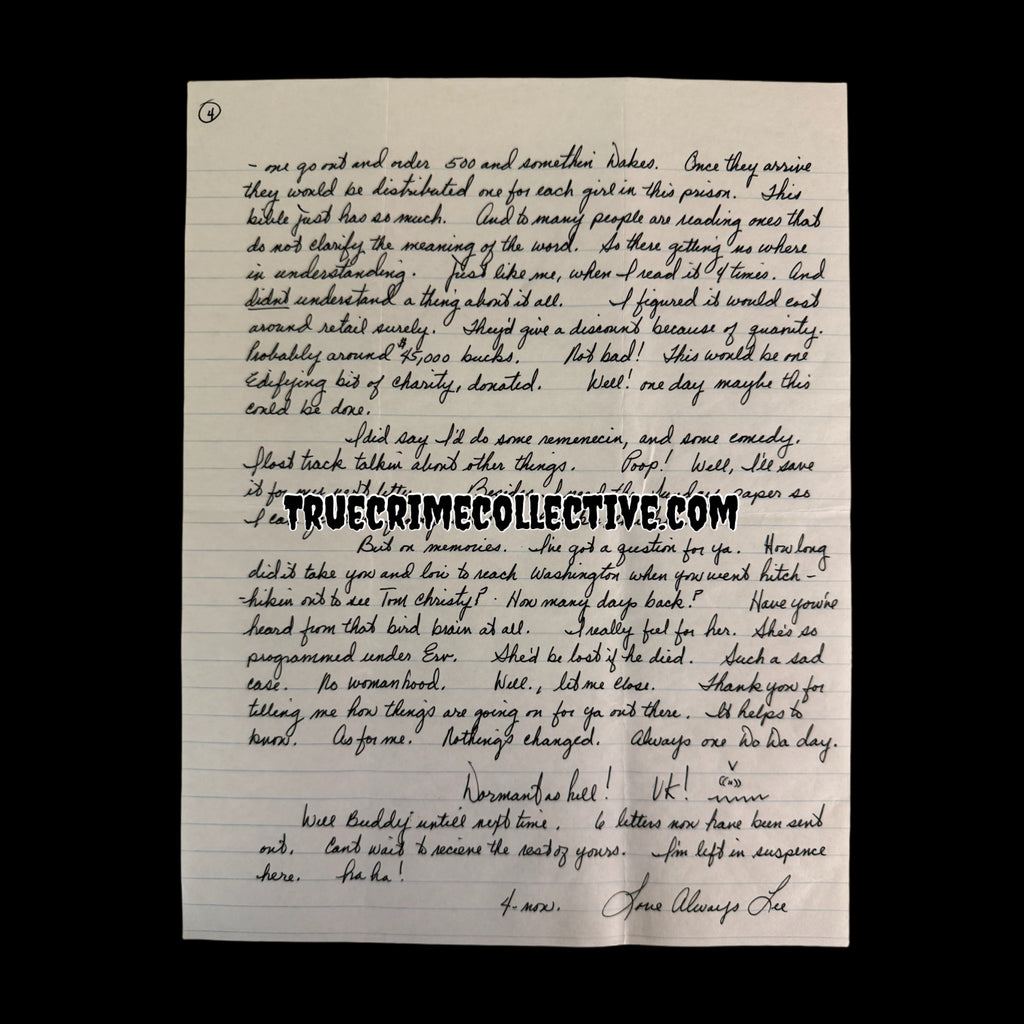 4
- one go out and order 500 and somethin Dakes. Once they arrive
they would be distributed one for each girl in this prison. This
bible just has so much. And to many people are reading ones that
do not clarify the meaning of the word. So there getting no where
in understanding. Just like me, when I read it 4 times. And
didn't understand a thing about it all. I figured it would cost
around retail surely. They'd give a discount because of quanity.
Probably around $45,000 bucks. Not bad! This would be one
Edifying bit of charity, donated. Well! one day maybe this
could be done.
I did say I'd do some remenecin, and some comedy.
I lost track talkin about other things. Poop! Well, I'll save
it for my next letter. Besides I need the paper so
I
TRUECRIMECOLLECTIVE.COM
But on memories. I've got a question for ya. How long
did it take you and lori to reach Washington when you went hitch -
- hikin out to see Tom Christy? How many days back? Have you're
heard from that bird brain at all. I really feel for her. She's so
programmed under Erv. She'd be lost if he died. Such a sad
case. No womanhood. Well., let me close. Thank you for
telling me how things are going on for ya out there. It helps to
know. As for me. Nothing's changed. Always one Do Da day.
Dormant as hell! UK!
Well Buddy untill next time. 6 letters now have been sent
out. Cant wait to recieve the rest of yours. I'm left in suspence
here. ha ha!
4-now. Love Always Lee